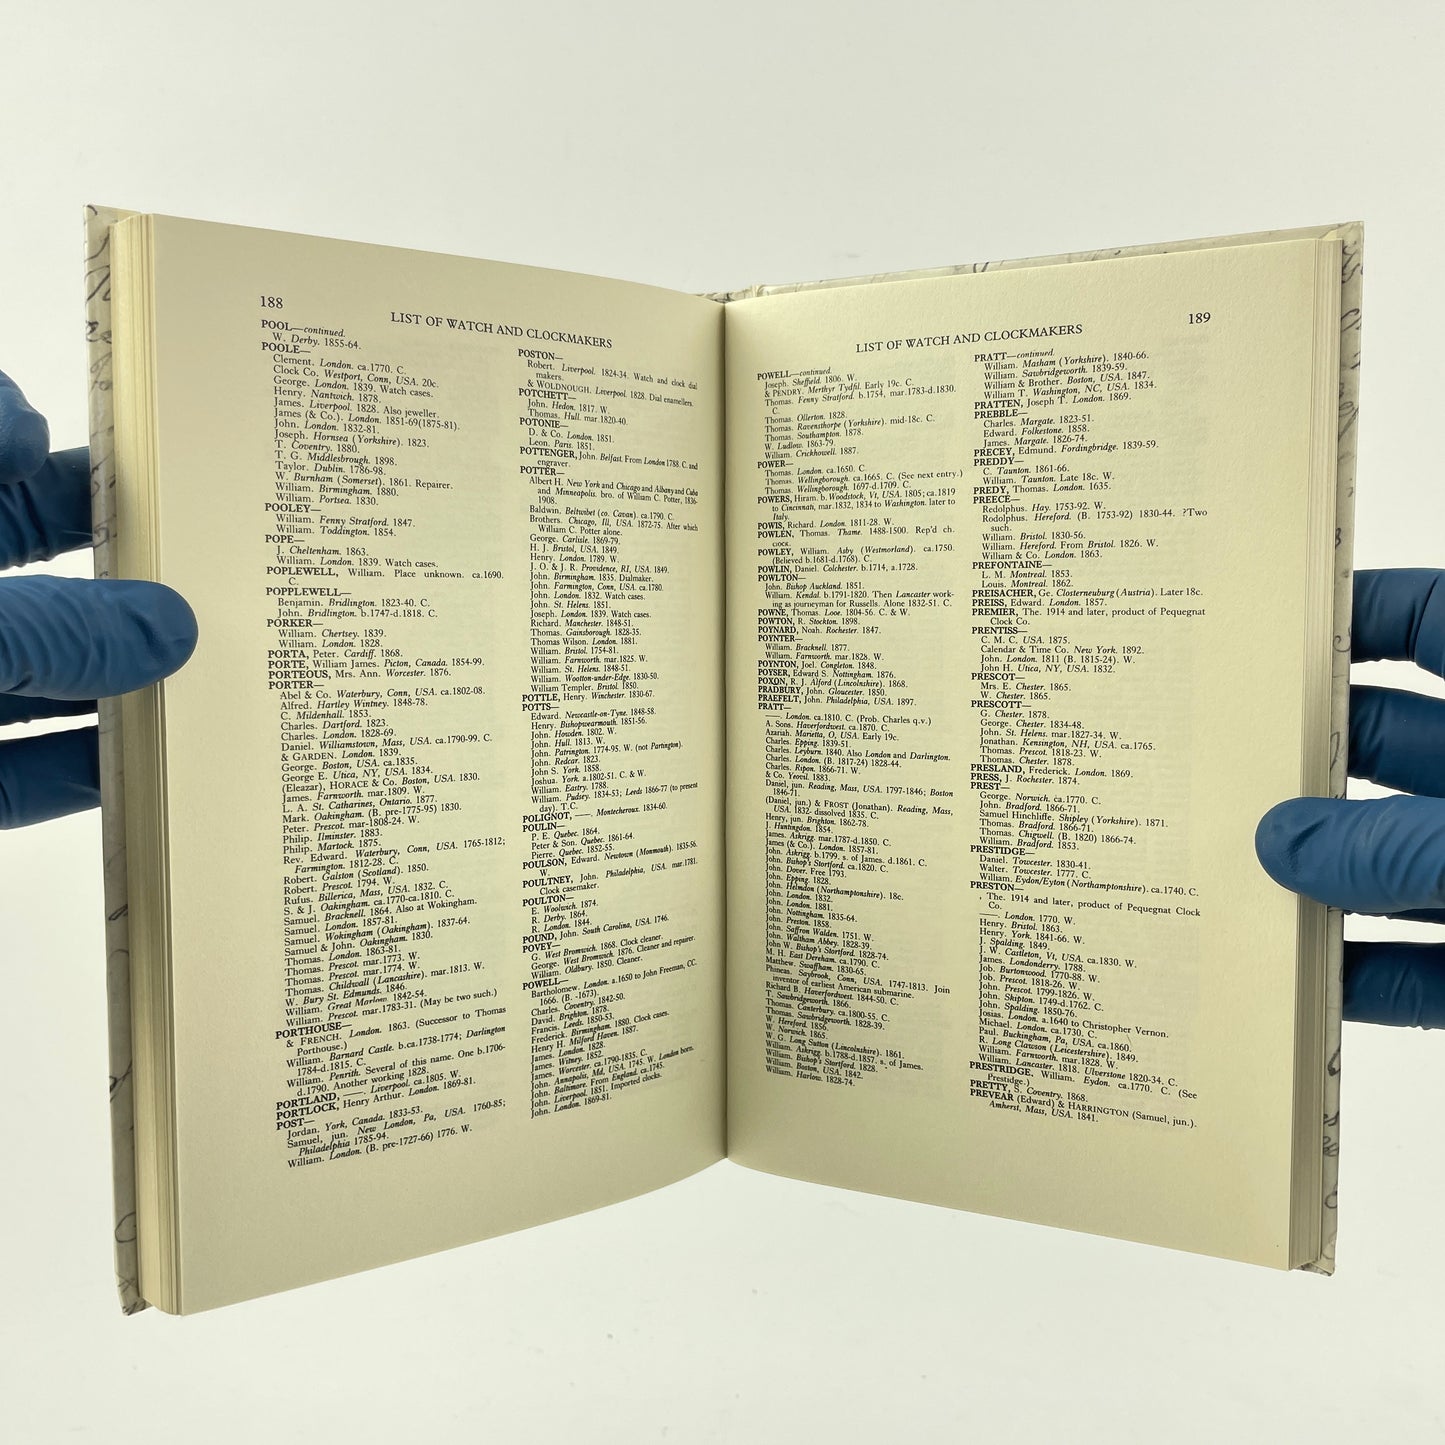 188
LIST OF WATCH AND CLOCKMAKERS
POOL—continued.
W. Derby. 1855-64.
POOLE—
Clement. London. ca.1770. C.
Clock Co. Westport, Conn, USA. 20c.
George. London. 1839. Watch cases.
Henry. Nantwich. 1878.
James. Liverpool. 1828. Also jeweller.
James (& Co.). London. 1851-69(1875-81).
John. London. 1832-81.
Joseph. Hornsea (Yorkshire). 1823.
T. Coventry. 1880.
T. G. Middlesbrough. 1898.
Taylor. Dublin. 1786-98.
W. Burnham (Somerset). 1861. Repairer.
William. Birmingham. 1880.
William. Portsea. 1830.
POOLEY—
William. Fenny Stratford. 1847.
William. Toddington. 1854.
POPE—
J. Cheltenham. 1863.
William. London. 1839. Watch cases.
POPLEWELL, William. Place unknown. ca.1690.
C.
POPPLEWELL—
Benjamin. Bridlington. 1823-40. C.
John. Bridlington. b.1747-d.1818. C.
PORKER—
William. Chertsey. 1839.
William. London. 1828.
PORTA, Peter. Cardiff. 1868.
PORTE, William James. Picton, Canada. 1854-99.
PORTEOUS, Mrs. Ann. Worcester. 1876.
PORTER—
Abel & Co. Waterbury, Conn, USA. ca.1802-08.
Alfred. Hartley Wintney. 1848-78.
C. Mildenhall. 1853.
Charles. Dartford. 1823.
Charles. London. 1828-69.
Daniel. Williamstown, Mass, USA. ca.1790-99. C.
& GARDEN. London. 1839.
George. Boston, USA. ca.1835.
George E. Utica, NY, USA. 1834.
(Eleazar), HORACE & Co. Boston, USA. 1830.
James. Farnworth. mar.1809. W.
L. A. St. Catharines, Ontario. 1877.
Mark. Oakingham. (B. pre-1775-95) 1830.
Peter. Prescot. mar-1808-24. W.
Philip. Ilminster. 1883.
Philip. Martock. 1875.
Rev. Edward. Waterbury, Conn, USA. 1765-1812;
Farmington. 1812-28. C.
Robert. Galston (Scotland). 1850.
Robert. Prescot. 1794. W.
Rufus. Billerica, Mass, USA. 1832. C.
S. & J. Oakingham. ca.1770-ca.1810. C.
Samuel. Bracknell. 1864. Also at Wokingham.
Samuel. London. 1857-81.
Samuel. Wokingham (Oakingham). 1937-64.
Samuel & John. Oakingham. 1830.
Thomas. London. 1863-81.
Thomas. Prescot. mar.1773. W.
Thomas. Prescot. mar.1774. W.
Thomas. Childwall (Lancashire). mar.1813. W.
W. Bury St. Edmunds. 1846.
William. Great Marlow. 1842-54.
William. Prescot. mar.1783-31. (May be two such.)
PORTHOUSE—
& FRENCH. London. 1863. (Successor to Thomas
Porthouse.)
William. Barnard Castle. b.ca.1738-1774; Darlington
1784-d.1815. C.
William. Penrith. Several of this name. One b.1706-
d.1790. Another working 1828.
PORTLAND, ——. Liverpool. ca.1805. W.
PORTLOCK, Henry Arthur. London. 1869-81.
POST—
Jordan. York, Canada. 1833-53.
Samuel, jun. New London, Pa, USA. 1760-85;
Philadelphia 1785-94.
William. London. (B. pre-1727-66) 1776. W.
POSTON—
Robert. Liverpool. 1824-34. Watch and clock dial
makers.
& WOLDNOUGH. Liverpool. 1828. Dial enamellers.
POTCHETT—
John. Hedon. 1817. W.
Thomas. Hull. mar.1820-40.
POTONIE—
D. & Co. London. 1851.
Leon. Paris. 1851.
POTTENGER, John. Belfast. From London 1788. C. and
engraver.
POTTER—
Albert H. New York and Chicago and Albany and Cuba
and Minneapolis. bro. of William C. Potter, 1836-
1908.
Baldwin. Beltwibet (co. Cavan). ca.1790. C.
Brothers. Chicago, Ill, USA. 1872-75. After which
William C. Potter alone.
George. Carlisle. 1869-79.
H. J. Bristol, USA. 1849.
Henry. London. 1789. W.
J. O. & J. R. Providence, RI, USA. 1849.
John. Birmingham. 1835. Dialmaker.
John. Farmington, Conn, USA. ca.1780.
John. London. 1832. Watch cases.
John. St. Helens. 1851.
Joseph. London. 1839. Watch cases.
Richard. Manchester. 1848-51.
Thomas. Gainsborough. 1828-35.
Thomas Wilson. London. 1881.
William. Bristol. 1754-81.
William. Farnworth. mar.1825. W.
William. St. Helens. 1848-51.
William. Wootton-under-Edge. 1830-50.
William Templer. Bristol. 1850.
POTTLE, Henry. Winchester. 1830-67.
POTTS—
Edward. Newcastle-on-Tyne. 1848-58.
Henry. Bishopwearmouth. 1851-56.
John. Howden. 1802. W.
John. Hull. 1813. W.
John. Patrington. 1774-95. W. (not Partington).
John. Redcar. 1823.
John S. York. 1858.
Joshua. York. a.1802-51. C. & W.
William. Eastry. 1788.
William. Pudsey. 1834-53; Leeds 1866-77 (to present
day). T.C.
POLIGNOT, ——. Montecheroux. 1834-60.
POULIN—
P. E. Quebec. 1864.
Peter & Son. Quebec. 1861-64.
Pierre. Quebec. 1852-55.
POULSON, Edward. Newtown (Monmouth). 1835-56.
W.
POULTNEY, John. Philadelphia, USA. mar.1781.
Clock casemaker.
POULTON—
E. Woolwich. 1874.
R. Derby. 1864.
R. London. 1844.
POUND, John. South Carolina, USA. 1746.
POVEY—
G. West Bromwich. 1868. Clock cleaner.
George. West Bromwich. 1876. Cleaner and repairer.
William. Oldbury. 1850. Cleaner.
POWELL—
Bartholomew. London. a.1650 to John Freeman, CC.
1666. (B. -1673).
Charles. Coventry. 1842-50.
David. Brighton. 1878.
Francis. Leeds. 1850-53.
Frederick. Birmingham. 1880. Clock cases.
Henry H. Milford Haven. 1887.
James. London. 1828.
James. Witney. 1852.
James. Worcester. ca.1790-1835. C.
John. Annapolis, Md, USA. 1745. W. London born.
John. Baltimore. From England. ca.1745.
John. Liverpool. 1851. Imported clocks.
John. London. 1869-81.
LIST OF WATCH AND CLOCKMAKERS
189
POWELL—continued.
Joseph. Sheffield. 1806. W.
& PENDRY. Merthyr Tydfil. Early 19c. C.
Thomas. Fenny Stratford. b.1754, mar.1783-d.1830.
C.
Thomas. Ollerton. 1828.
Thomas. Ravensthorpe (Yorkshire). mid-18c. C.
Thomas. Southampton. 1878.
W. Ludlow. 1863-79.
William. Crickhowell. 1887.
POWER—
Thomas. London. ca.1650. C.
Thomas. Wellingborough. ca.1665. C. (See next entry.)
Thomas. Wellingborough. 1697-d.1709. C.
POWERS, Hiram. b. Woodstock, Vt, USA. 1805; ca.1819
to Cincinnati, mar.1832, 1834 to Washington. later to
Italy.
POWIS, Richard. London. 1811-28. W.
POWLEN, Thomas. Thame. 1488-1500. Rep'd ch.
clock.
POWLEY, William. Asby (Westmorland). ca.1750.
(Believed b.1681-d.1768). C.
POWLIN, Daniel. Colchester. b.1714, a.1728.
POWLTON—
John. Bishop Auckland. 1851.
William. Kendal. b.1791-1820. Then Lancaster work-
ing as journeyman for Russells. Alone 1832-51. C.
POWNE, Thomas. Looe. 1804-56. C. & W.
POWTON, R. Stockton. 1898.
POYNARD, Noah. Rochester. 1847.
POYNTER—
William. Bracknell. 1877.
William. Farnworth. mar.1828. W.
POYNTON, Joel. Congleton. 1848.
POYSER, Edward S. Nottingham. 1876.
POXON, R. J. Alford (Lincolnshire). 1868.
PRADBURY, John. Gloucester. 1850.
PRAEFELT, John. Philadelphia, USA. 1897.
PRATT—
——. London. ca.1810. C. (Prob. Charles q.v.)
A. Sons. Haverfordwest. ca.1870. C.
Azariah. Marietta, O, USA. Early 19c.
Charles. Epping. 1839-51.
Charles. Leyburn. 1840. Also London and Darlington.
Charles. London. (B. 1817-24) 1828-44.
Charles. Ripon. 1866-71. W.
& Co. Yeovil. 1883.
Daniel, jun. Reading, Mass, USA. 1797-1846; Boston
1846-71.
(Daniel, jun.) & FROST (Jonathan). Reading, Mass,
USA. 1832. dissolved 1835. C.
Henry, jun. Brighton. 1862-78.
J. Huntingdon. 1854.
James. Askrigg. mar.1787-d.1850. C.
James (& Co.). London. 1857-81.
John. Askrigg. b.1799, s. of James. d.1861. C.
John. Bishop's Stortford. ca.1820. C.
John. Dover. Free 1793.
John. Epping. 1828.
John. Helmdon (Northamptonshire). 18c.
John. London. 1832.
John. London. 1881.
John. Nottingham. 1835-64.
John. Preston.
John. Saffron Walden. 1751. W.
John. Waltham Abbey. 1828-39.
John W. Bishop's Stortford. 1828-74.
M. H. East Dereham. ca.1790. C.
Matthew. Swaffham. 1830-65.
Phineas. Saybrook, Conn, USA. 1747-1813. Join
inventor of earliest American submarine.
Richard B. Haverfordwest. 1844-50. C.
T. Sawbridgeworth. 1866.
Thomas. Canterbury. ca.1800-55. C.
Thomas. Sawbridgeworth. 1828-39.
W. Hereford. 1856.
W. Norwich. 1865.
W. G. Long Sutton (Lincolnshire). 1861.
William. Askrigg. b.1788-d.1857. s. of James.
William. Bishop's Stortford. 1828.
William. Boston, USA. 1842.
William. Harlow. 1828-74.
PRATT—continued.
William. Masham (Yorkshire). 1840-66.
William. Sawbridgeworth. 1839-59.
William & Brother. Boston, USA. 1847.
William T. Washington, NC, USA. 1834.
PRATTEN, Joseph T. London. 1869.
PREBBLE—
Charles. Margate. 1823-51.
Edward. Folkestone. 1858.
James. Margate. 1826-74.
PRECEY, Edmund. Fordingbridge. 1839-59.
PREDDY—
C. Taunton. 1861-66.
William. Taunton. Late 18c. W.
PREDY, Thomas. London. 1635.
PREECE—
Redolphus. Hay. 1753-92. W.
Rodolphus. Hereford. (B. 1753-92) 1830-44. ?Two
such.
William. Bristol. 1830-56.
William. Hereford. From Bristol. 1826. W.
William & Co. London. 1863.
PREFONTAINE—
L. M. Montreal. 1853.
Louis. Montreal. 1862.
PREISACHER, Ge. Closterneuburg (Austria). Later 18c.
PREISS, Edward. London. 1857.
PREMIER, The. 1914 and later, product of Pequegnat
Clock Co.
PRENTISS—
C. M. C. USA. 1875.
Calendar & Time Co. New York. 1892.
John. London. 1811 (B. 1815-24). W.
John H. Utica, NY, USA. 1832.
PRESCOT—
Mrs. E. Chester. 1865.
W. Chester. 1865.
PRESCOTT—
G. Chester. 1878.
George. Chester. 1834-48.
John. St. Helens. mar.1827-34. W.
Jonathan. Kensington, NH, USA. ca.1765.
Thomas. Prescot. 1818-23. W.
Thomas. Chester. 1878.
PRESLAND, Frederick. London. 1869.
PRESS, J. Rochester. 1874.
PREST—
George. Norwich. ca.1770. C.
John. Bradford. 1866-71.
Samuel Hinchliffe. Shipley (Yorkshire). 1871.
Thomas. Bradford. 1866-71.
Thomas. Chigwell. (B. 1820) 1866-74.
William. Bradford. 1853.
PRESTIDGE—
Daniel. Towcester. 1830-41.
Walter. Towcester. 1777. C.
William. Eydon/Eyton (Northamptonshire). ca.1740. C.
PRESTON—
, The. 1914 and later, product of Pequegnat Clock
Co.
——. London. 1770. W.
Henry. Bristol. 1863.
Henry. York. 1841-66. W.
J. Spalding. 1849.
J. W. Castleton, Vt, USA. ca.1830. W.
James. Londonderry. 1788.
Job. Burtonwood. 1770-88. W.
Job. Prescot. 1818-26. W.
John. Prescot. 1799-1826. W.
John. Skipton. 1749-d.1762. C.
John. Spalding. 1850-76.
Josias. London. a.1640 to Christopher Vernon.
Michael. London. ca.1730. C.
Paul. Buckingham, Pa, USA. ca.1860.
R. Long Clawson (Leicestershire). 1849.
William. Farnworth. mar.1828. W.
William. Lancaster. 1818. Ulverstone 1820-34. C.
PRESTRIDGE, William. Eydon. ca.1770. C. (See
Prestidge.)
PRETTY, S. Coventry. 1868.
PREVEAR (Edward) & HARRINGTON (Samuel, jun.).
Amherst, Mass, USA. 1841.